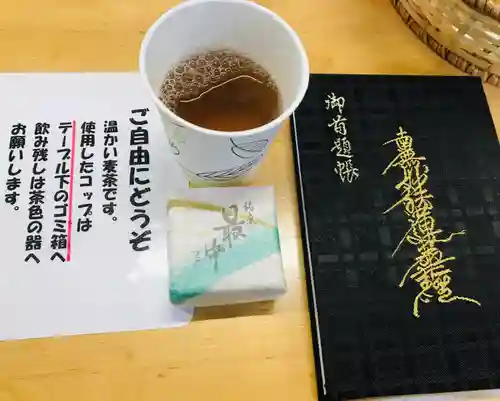 ご自由にどうぞ
温かい麦茶です。
使用したコップは
テーブル下のゴミ箱へ
飲み残しは茶色の器へ
お願いします。
最中
御首題帳
南無妙法蓮華経